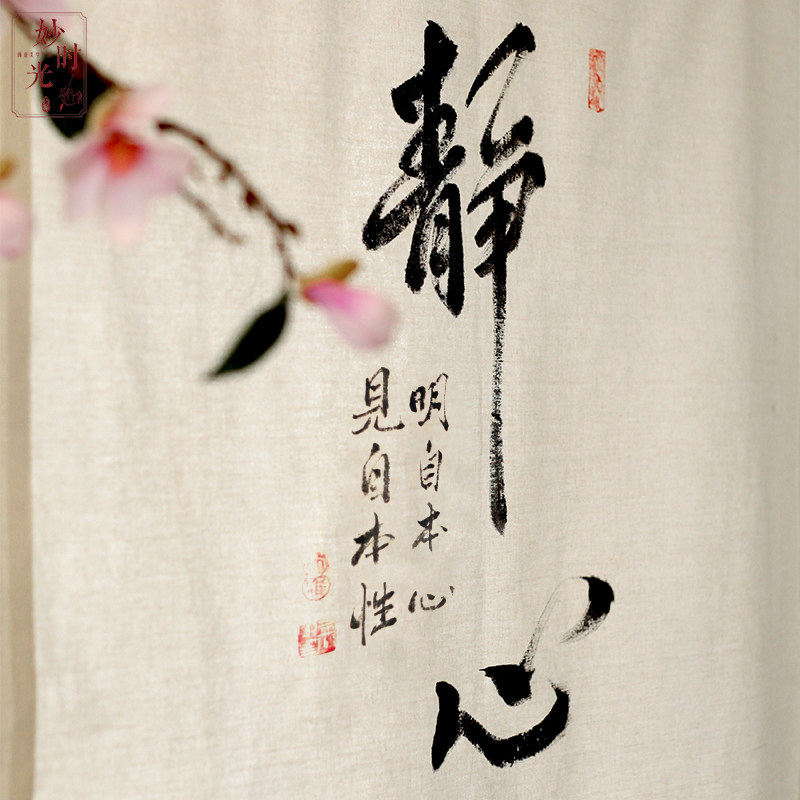 静心
明自本心
見自本性
妙时光